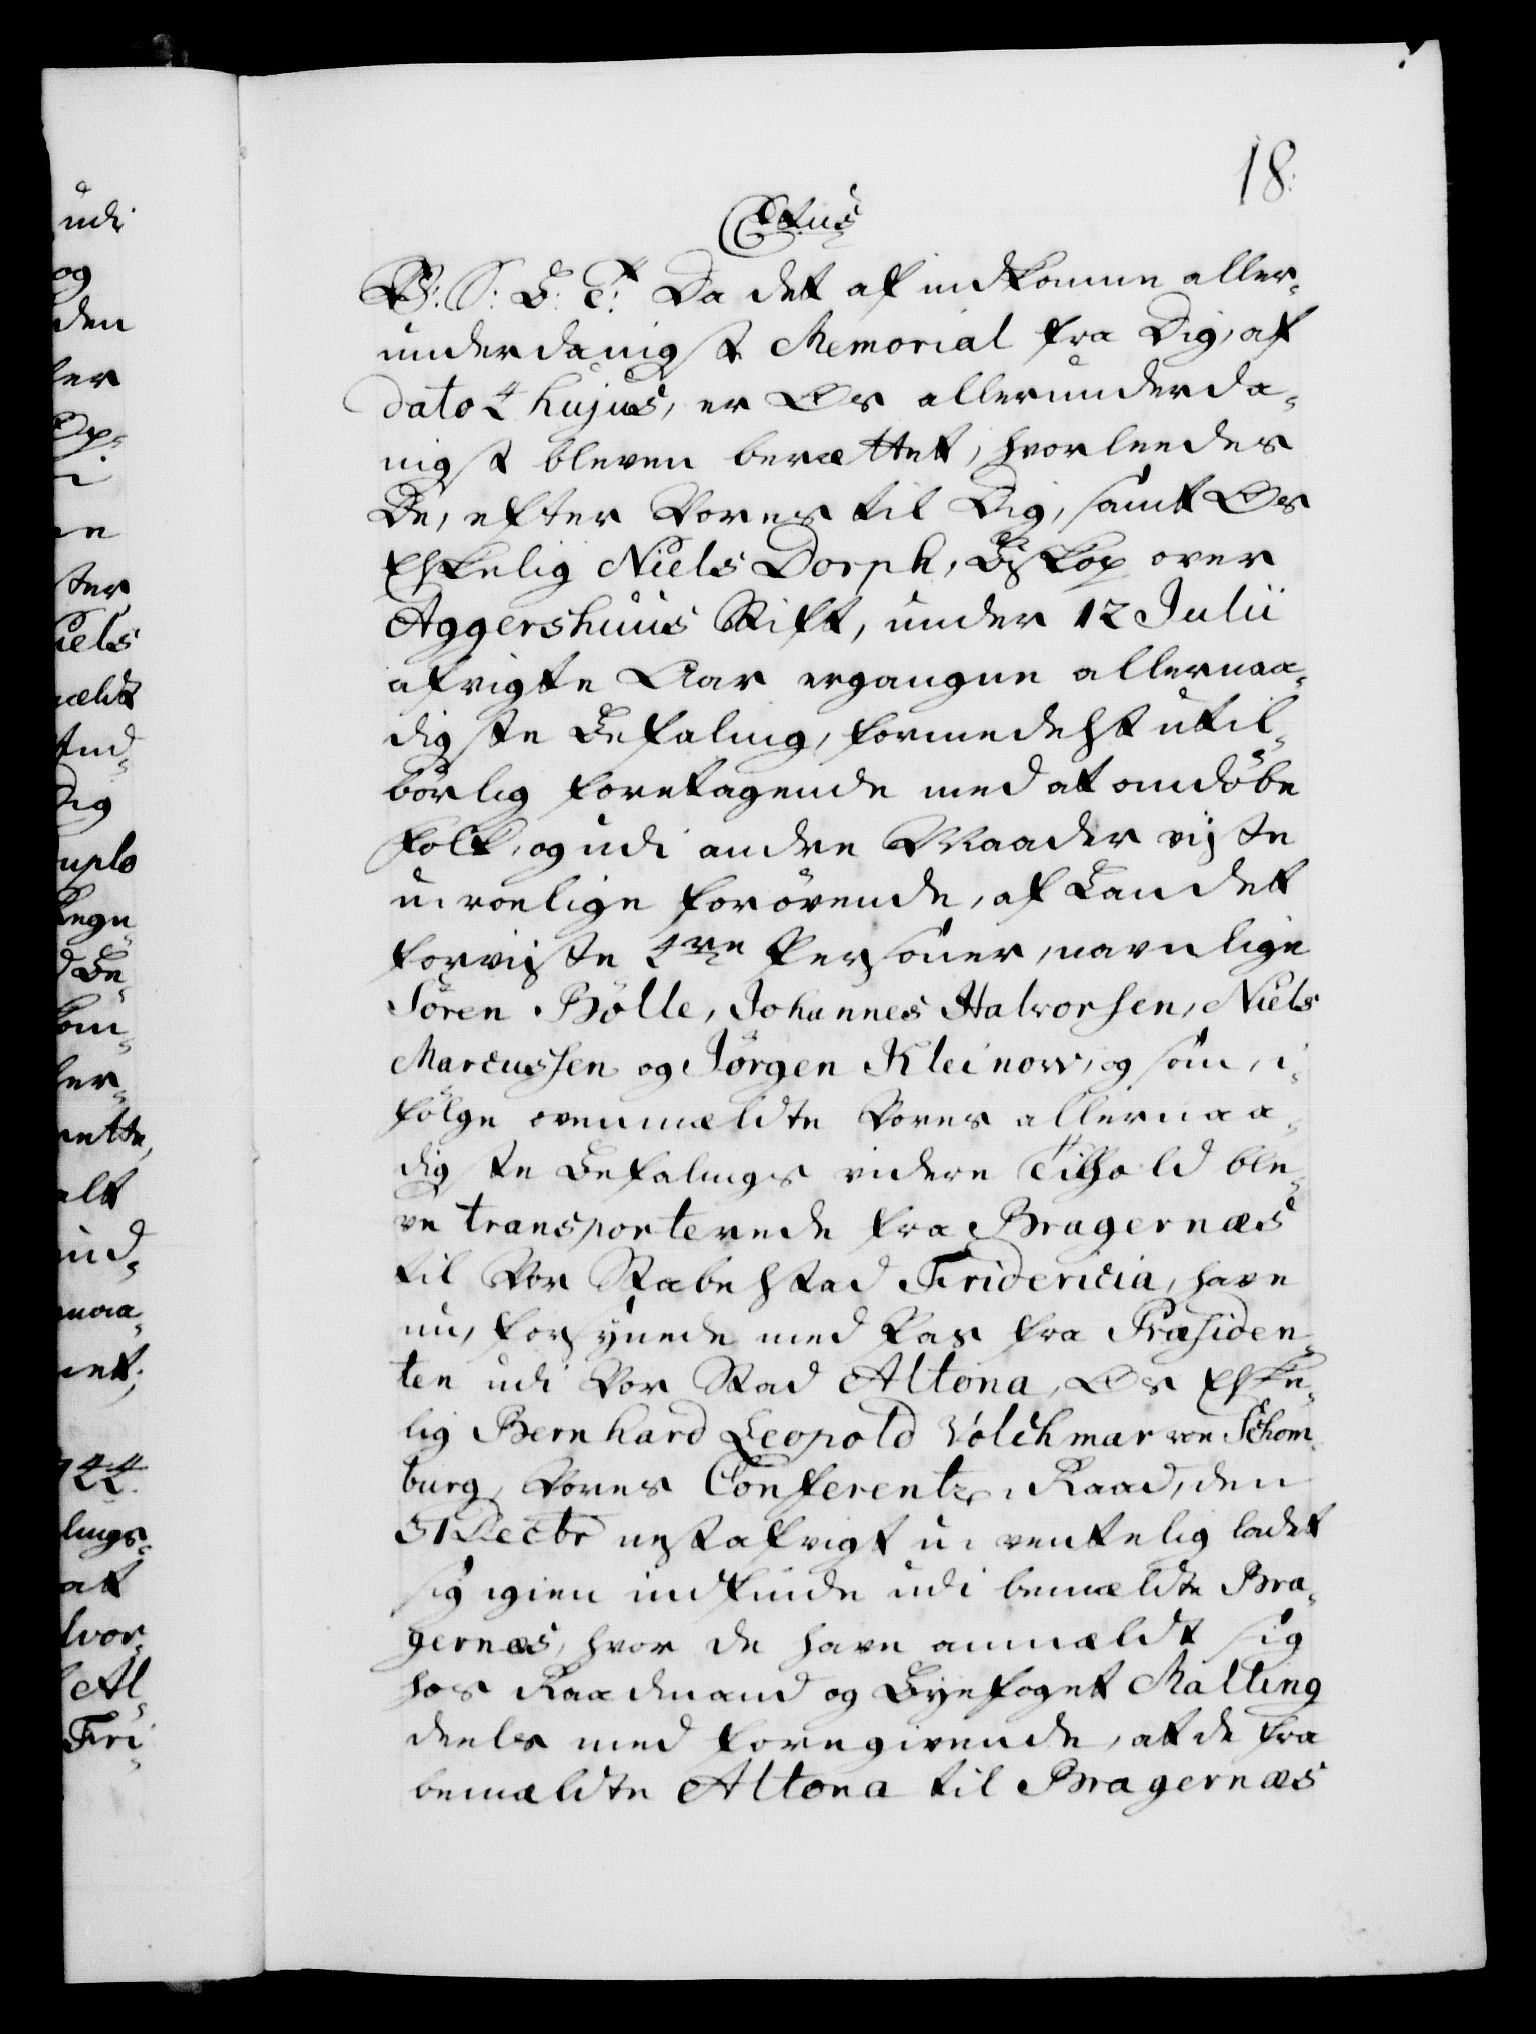 18.
C6tus
V: S: G: T: Da det af indkomne aller-
underdanigst Memorial fra Dig, af
dato 4 hujus, er Os allerunderda-
nigst bleven berættet, hvorleedes
De, efter Vores til Dig, samt Os
Elskelig Niels Dorph, Biskop over
Aggershuus Stift, under 12 Julii
afvigte Aar ergangne allernaa-
digste Befaling, formedelst util-
børlig foretagende med at omdøbe
folk, og udi andre Maader viste
u-roelige forøvende, af Landet
forviste 4re Personer, navnlige
Søren Bølle, Johannes Halvorsen, Niels
Marcussen og Jørgen Kleinow, og som, i-
følge ovenmældte Vores allernaa-
digste Befalings videre Tilhold ble-
ve transporterede fra Bragernæs
til Vor Stabelstad Fridericia, have
nu, forsynede med Pas fra Præsiden-
ten udi Vor Stad Altona, Os Elske-
lig Bernhard Leopold Volchmar von Schom-
burg, Vores Conferentz-Raad, den
31 Decbr nestafvigt u-ventelig ladet
sig igien indfinde udi bemældte Bra-
gernæs, hvor de have anmældt sig
hos Raadmand og Byefoget Malling
deels med foregivende, at de fra
bemældte Altona til Bragernæs
udi
og
den
Niels
Dig
Be-
744
lings-
at
lvor-
Al-
Fri-